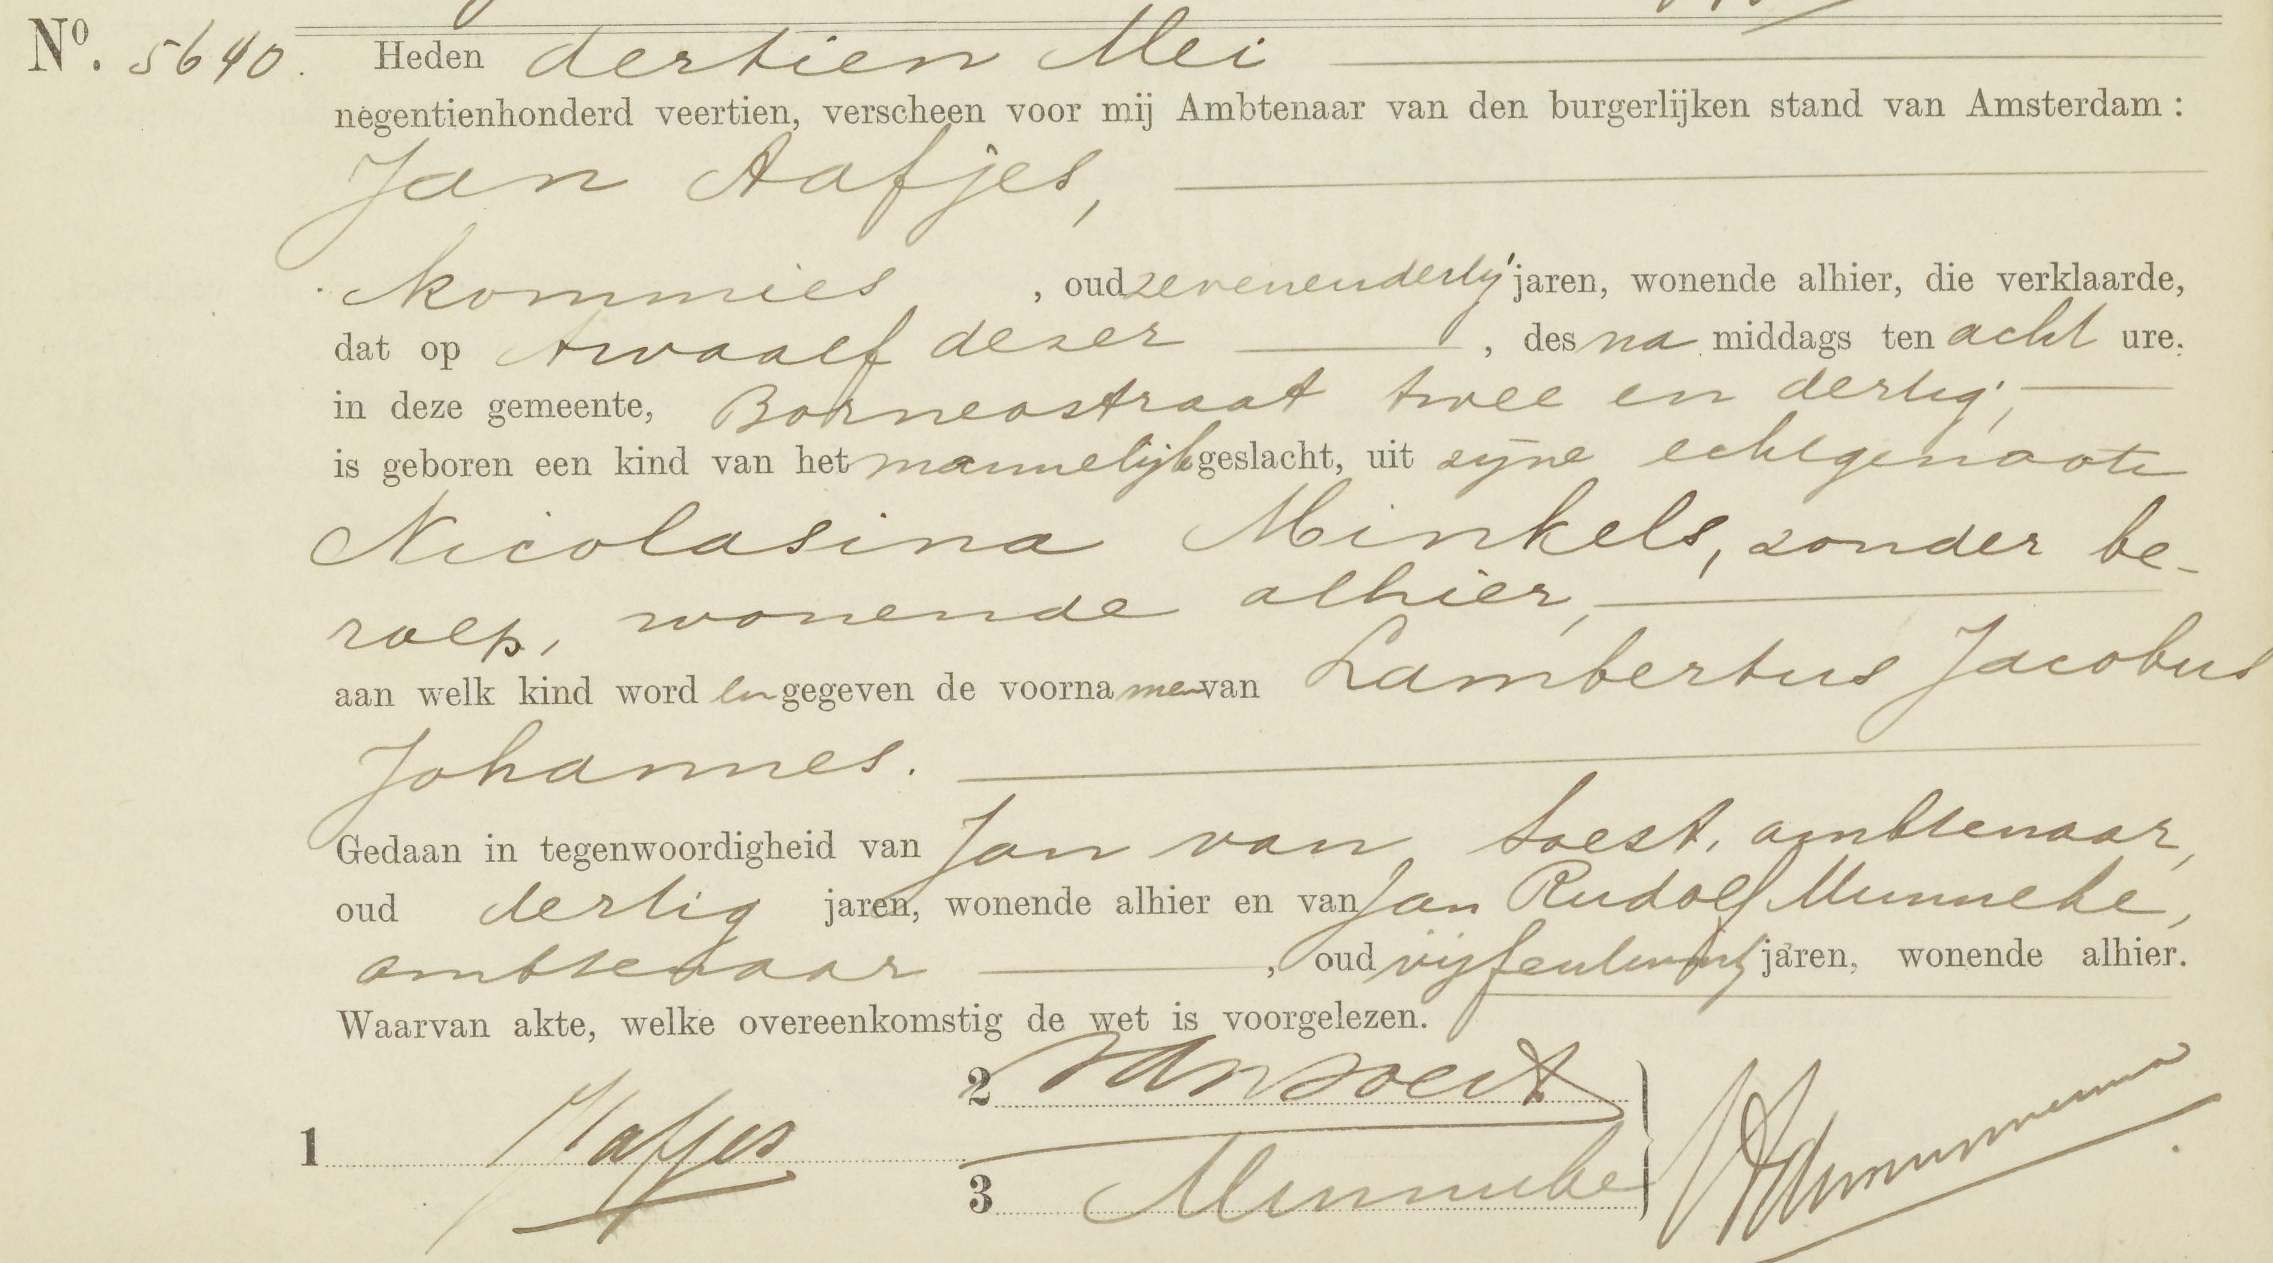 No. 5640. Heden dertien Mei
negentienhonderd veertien, verscheen voor mij Ambtenaar van den burgerlijken stand van Amsterdam :
Jan Aafjes,
kommies, oud zevenendertig jaren, wonende alhier, die verklaarde,
dat op twaalf dezer, des na middags ten acht ure,
in deze gemeente, Borneostraat twee en dertig,
is geboren een kind van het mannelijk geslacht, uit zijne echtgenoote
Nicolasina Minkels, zonder be-
roep, wonende alhier,
aan welk kind worden gegeven de voornamen van Lambertus Jacobus
Johannes.
Gedaan in tegenwoordigheid van Jan van Soest, ambtenaar,
oud dertig jaren, wonende alhier en van Jan Rudolf Munneke,
ambtenaar, oud vijfentwintig jaren, wonende alhier.
Waarvan akte, welke overeenkomstig de wet is voorgelezen.
2 van Soest
1 JAafjes
3 Munneke